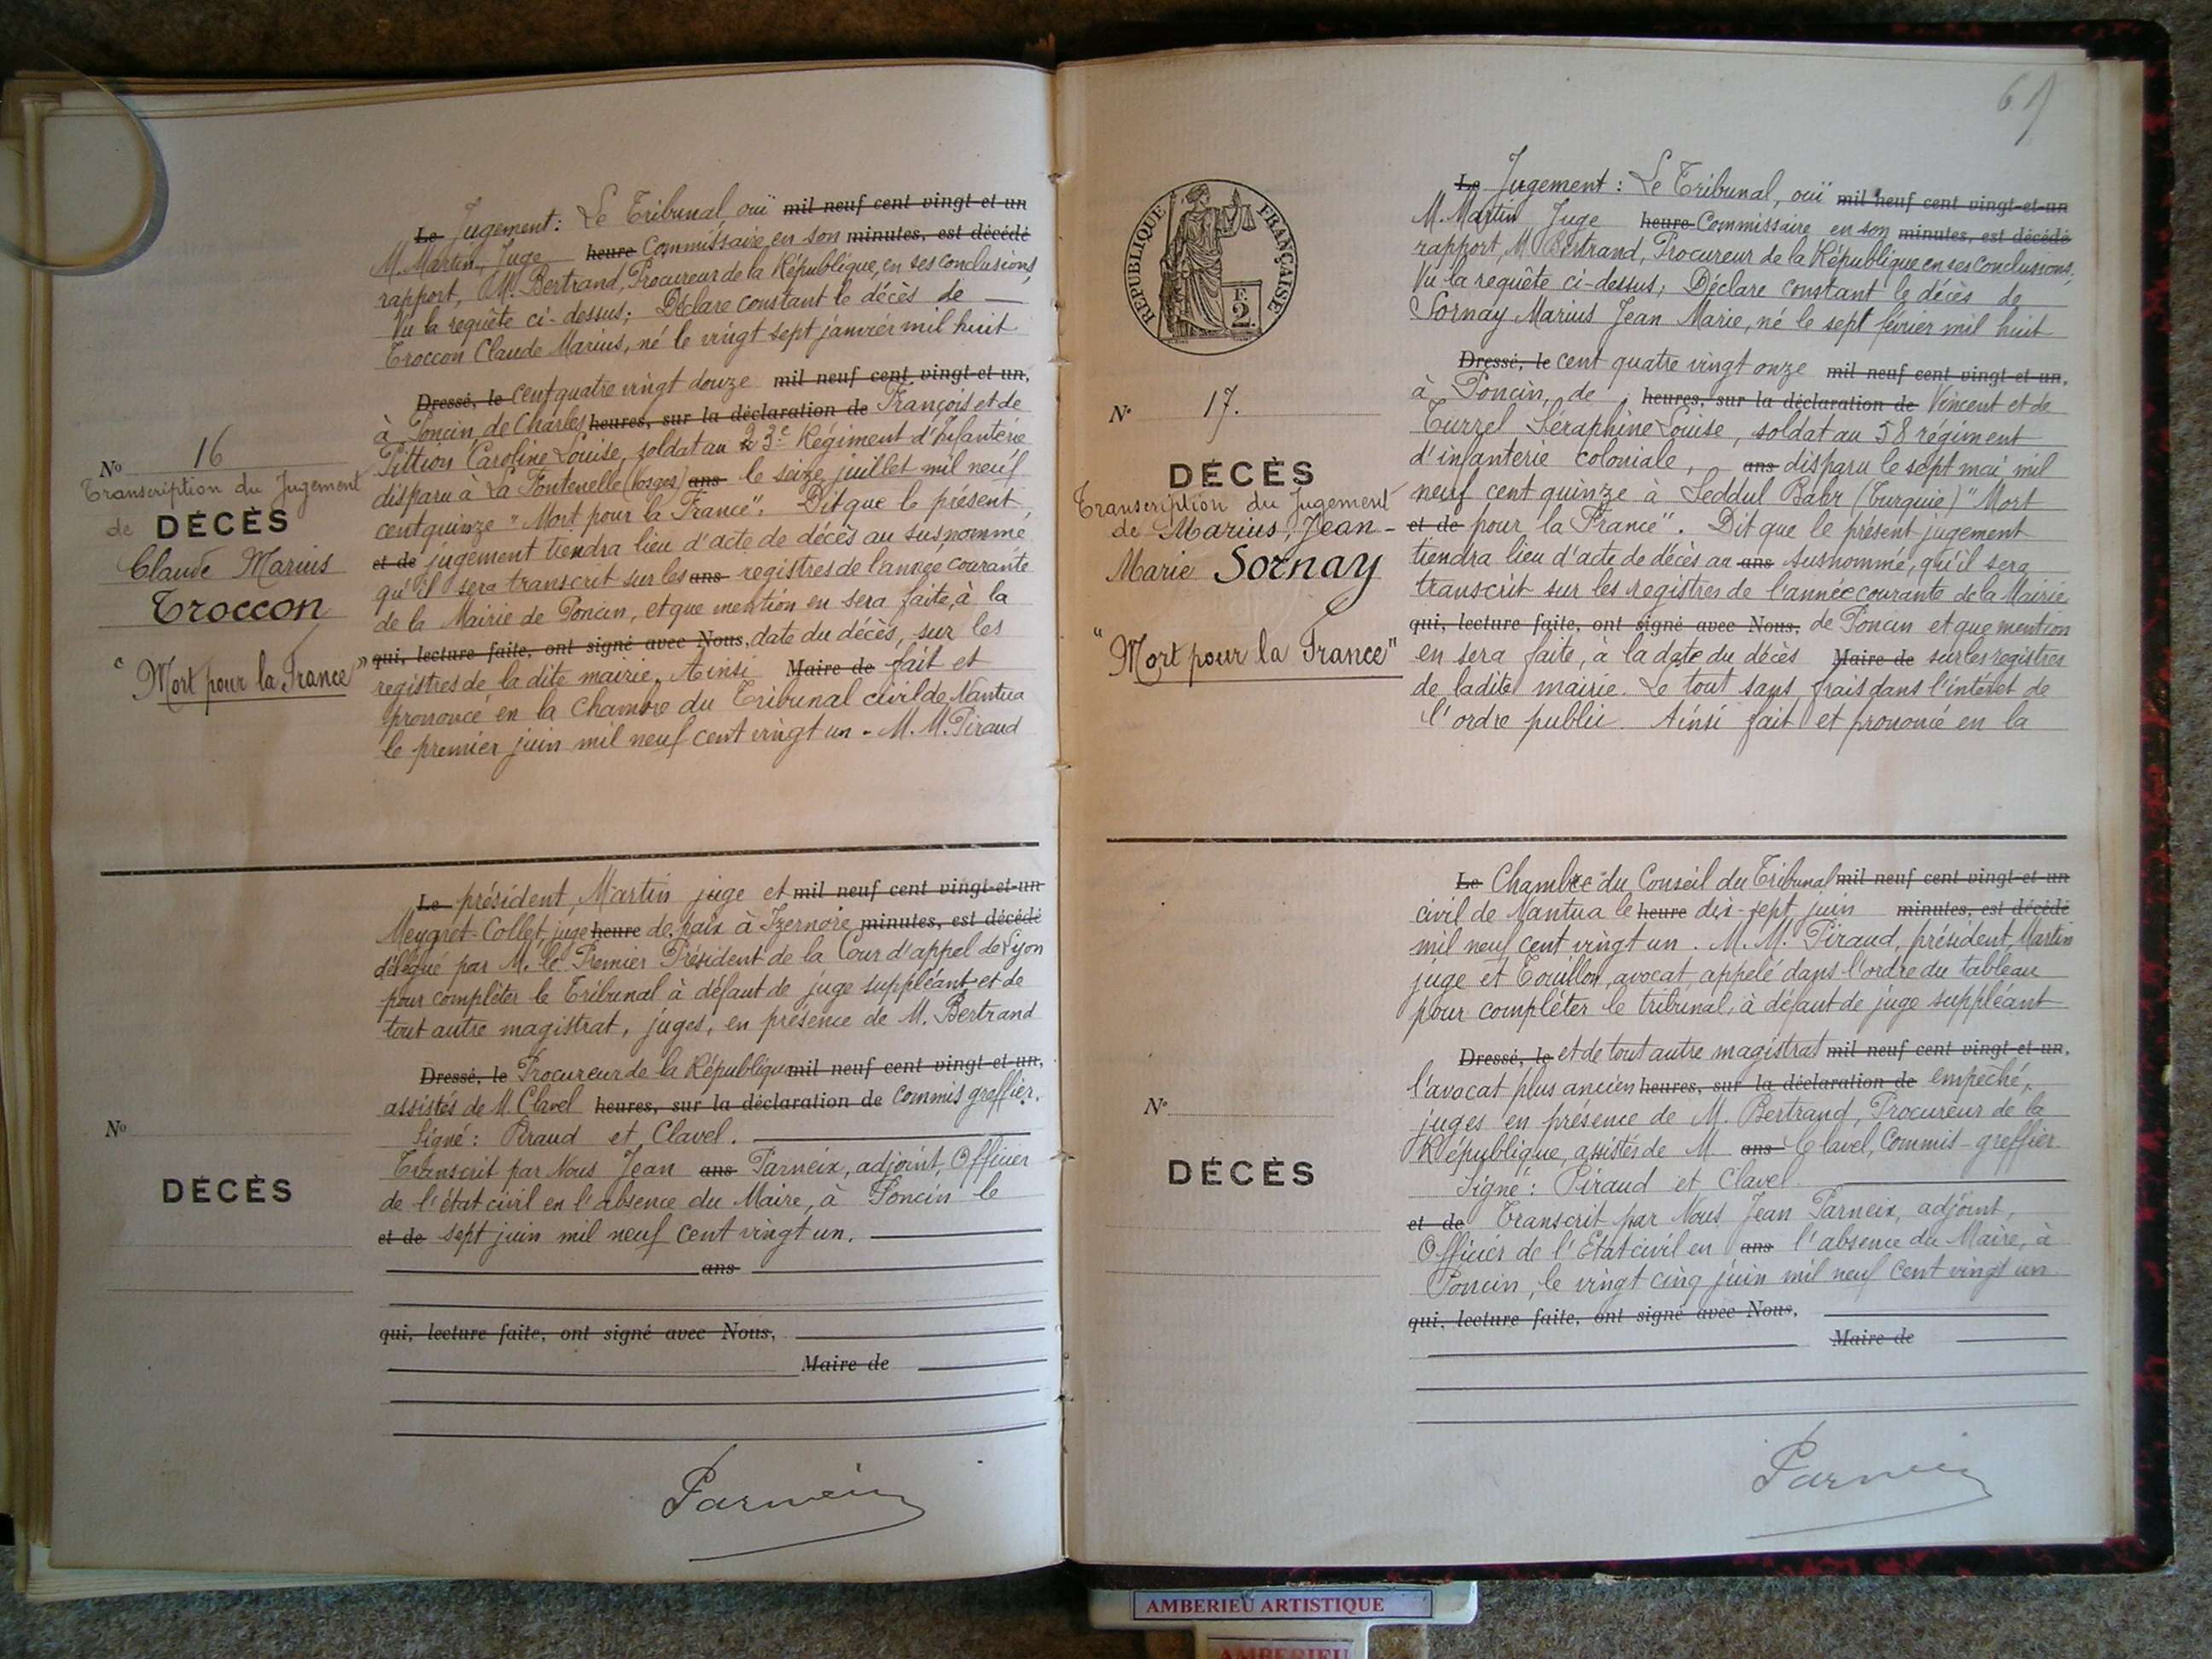 N° 16
Transcription du Jugement
de DÉCÈS
Claude Marius
Troccon
"Mort pour la France"
Le Jugement : Le Tribunal, ouï mil neuf cent vingt-et-un
M. Martin, Juge heure Commissaire, en son minutes, est décédé
rapport, M. Bertrand, Procureur de la République, en ses conclusions,
Vu la requête ci-dessus; Déclare constant le décès de
Troccon Claude Marius, né le vingt sept janvier mil huit
Dressé, le cent quatre vingt douze mil neuf cent vingt-et-un,
à Poncin, de Charles heures, sur la déclaration de François et de
Pittion Caroline Louise, soldat au 23e Régiment d'Infanterie
disparu à La Fontenelle (Vosges) ans le seize juillet mil neuf
cent quinze "Mort pour la France". Dit que le présent
et de jugement tiendra lieu d'acte de décès au susnommé
qu'il sera transcrit sur les ans registres de l'année courante
de la Mairie de Poncin, et que mention en sera faite, à la
qui, lecture faite, ont signé avec Nous, date du décès, sur les
registres de la dite mairie. Ainsi Maire de fait et
prononcé en la Chambre du Tribunal civil de Nantua
le premier juin mil neuf cent vingt un - M. M. Piraud
N°
DÉCÈS
Le président, Martin juge et mil neuf cent vingt-et-un
Meygret-Collet, juge heure de paix à Izernore minutes, est décédé
délégué par M. le Premier Président de la Cour d'appel de Lyon
pour compléter le Tribunal à défaut de juge suppléant et de
tout autre magistrat, juges, en présence de M. Bertrand
Dressé, le Procureur de la République mil neuf cent vingt-et-un,
assistés de M. Clavel heures, sur la déclaration de Commis greffier.
Signé : Piraud et Clavel.
Transcrit par Nous Jean ans Parneix, adjoint, Officier
de l'état civil en l'absence du Maire, à Poncin le
et de sept juin mil neuf cent vingt un.
ans
qui, lecture faite, ont signé avec Nous,
Maire de
Parneix
61
RÉPUBLIQUE FRANÇAISE
F.
2.
N° 17.
DÉCÈS
Transcription du Jugement
de Marius, Jean-
Marie Sornay
"Mort pour la France"
Le Jugement : Le Tribunal, ouï mil neuf cent vingt-et-un
M. Martin Juge heure Commissaire en son minutes, est décédé
rapport, M Bertrand, Procureur de la République en ses conclusions,
Vu la requête ci-dessus; Déclare constant le décès de
Sornay Marius Jean Marie, né le sept février mil huit
Dressé, le cent quatre vingt onze mil neuf cent vingt-et-un,
à Poncin, de heures, sur la déclaration de Vincent et de
Turrel Séraphine Louise, soldat au 58 régiment
d'infanterie coloniale, ans disparu le sept mai mil
neuf cent quinze à Seddul Bahr (Turquie) "Mort
et de pour la France". Dit que le présent jugement
tiendra lieu d'acte de décès au ans susnommé, qu'il sera
transcrit sur les registres de l'année courante de la Mairie
qui, lecture faite, ont signé avec Nous, de Poncin et que mention
en sera faite, à la date du décès Maire de sur les registres
de ladite mairie. Le tout sans frais dans l'intérêt de
l'ordre public. Ainsi fait et prononcé en la
N°
DÉCÈS
Le Chambre du Conseil du Tribunal mil neuf cent vingt-et-un
civil de Nantua le heure dix-sept juin minutes, est décédé
mil neuf cent vingt un. M. M. Piraud, président, Martin
juge et Touillon, avocat, appelé dans l'ordre du tableau
pour compléter le tribunal, à défaut de juge suppléant
Dressé, le et de tout autre magistrat mil neuf cent vingt-et-un,
l'avocat plus ancien heures, sur la déclaration de empêché,
juges en présence de M. Bertrand, Procureur de la
République, assistés de M. ans Clavel, Commis-greffier.
Signé : Piraud et Clavel.
et de Transcrit par Nous Jean Parneix, adjoint,
Officier de l'Etat civil en ans l'absence du Maire, à
Poncin, le vingt cinq juin mil neuf cent vingt un
qui, lecture faite, ont signé avec Nous,
Maire de
Parneix
AMBERIEU ARTISTIQUE
AMBERIEU